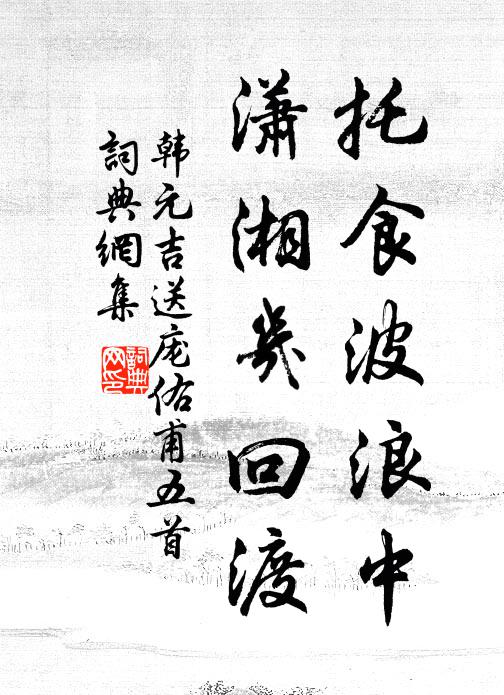 托食波浪中
潇湘几回渡
韩元吉送庞佑甫五首
詞典網集
詞典网印